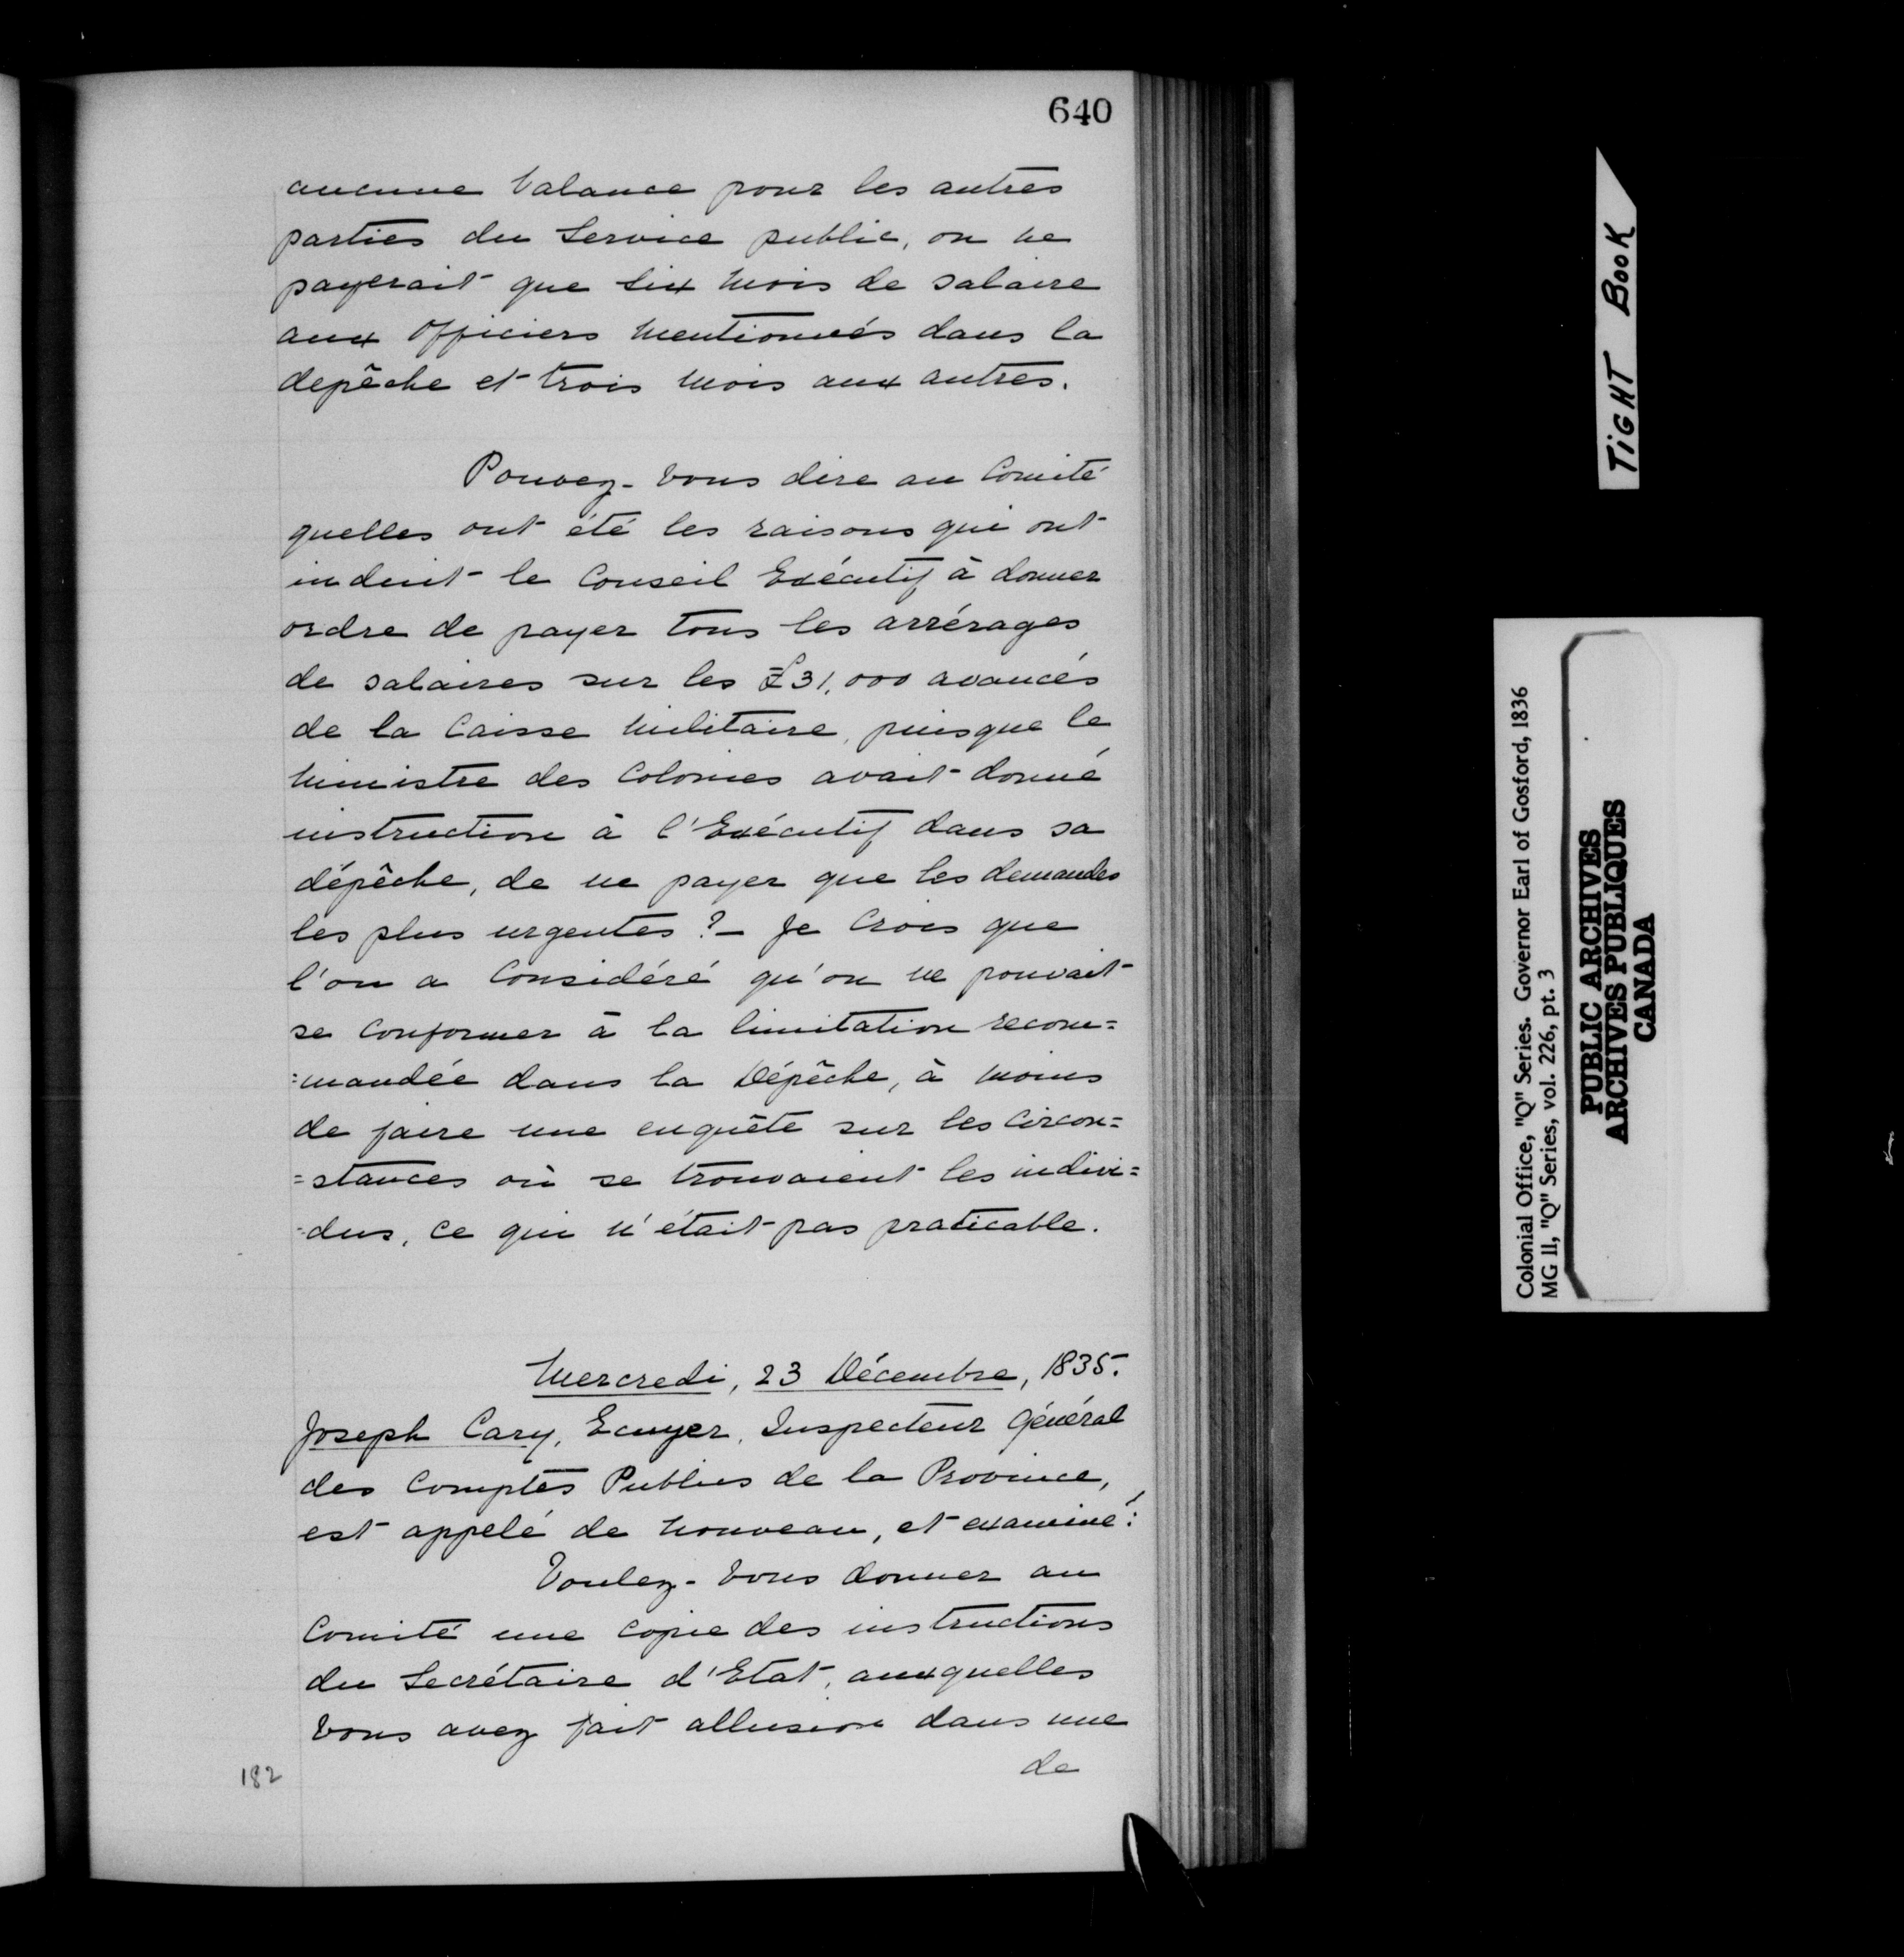 640
aucune balance pour les autres
parties du Service public, on ne
payerait que six mois de salaire
aux Officiers mentionnés dans la
depêche et trois mois aux autres.
Pouvez-vous dire au Comité
quelles ont été les raisons qui ont
induit le Conseil Exécutif à donner
ordre de payer tous les arrérages
de salaires sur les £31,000 avancés
de la Caisse Militaire, puisque le
Ministre des Colonies avait donné
instruction à l'Exécutif dans sa
dépêche, de ne payer que les demandes
les plus urgentes ?– Je crois que
l'on a considéré qu'on ne pouvait
se conformer à la limitation recom=
=mandée dans la Dépêche, à moins
de faire une enquête sur les circon=
=stances où se trouvaient les indivi=
=dus, ce qui n'était pas praticable.
Mercredi, 23 Décembre, 1835.
Joseph Cary, Ecuyer, Inspecteur Général
des Comptes Publics de la Province,
est appelé de nouveau, et examiné:
Voulez-vous donner au
Comité une copie des instructions
du Secrétaire d'Etat, auxquelles
vous avez fait allusion dans une
de
182
TiGHT BooK
Colonial Office, "Q" Series. Governor Earl of Gosford, 1836
MG 11, "Q" Series, vol. 226, pt. 3
PUBLIC ARCHIVES
ARCHIVES PUBLIQUES
CANADA